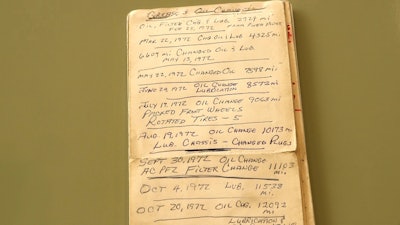 GREASE & OIL CHANGES
OIL, FILTER CHG & LUB. 2929 MI.
FEB 22, 1972
MAR 22, 1972 CHG OIL & LUB 4325 MI.
6609 MI CHANGED OIL & LUB
MAY 13, 1972
MAY 22, 1972 CHANGED OIL 7898 MI.
JUNE 29, 1972 OIL CHANGE 8572 MI
LUBRICATION
JULY 17, 1972 OIL CHANGE 9068 MI
PACKED FRONT WHEELS
ROTATED TIRES - 5
AUG 19, 1972 OIL CHANGE 10173 MI
LUB. CHASSIS - CHANGED PLUGS
SEPT 30, 1972 OIL CHANGE
AC PF2 FILTER CHANGE 11103 MI.
OCT 4, 1972 LUB. 11538 MI.
OCT 20, 1972 OIL CHG. 12092 MI.
LUBRICATION &